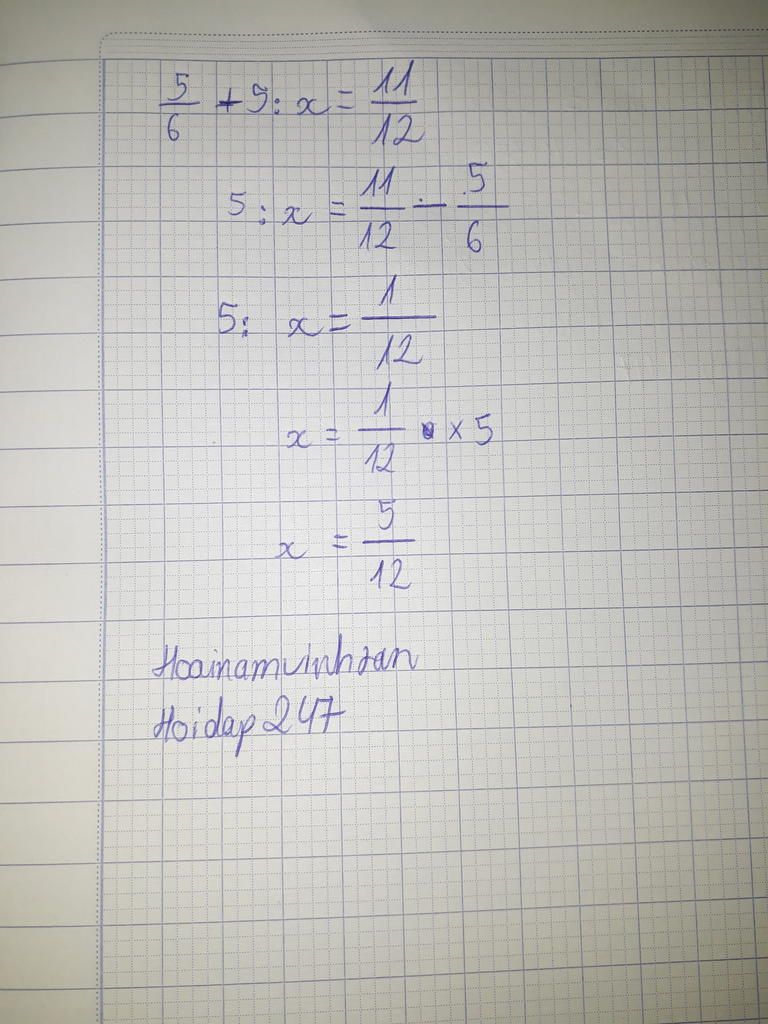 5/6 + 5 : x = 11/12
5 : x = 11/12 - 5/6
5 : x = 1/12
x = 1/12 × 5
x = 5/12
Hoainamvinhtan
Hoidap247